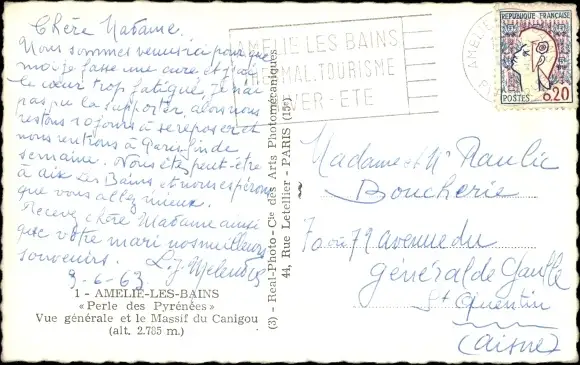 Chère Madame.
Nous sommes venus ici pour que
moi je fasse une cure et j'ai
le cœur trop fatigué, je n'ai
pas pu la supporter, alors nous
restons 10 jours à se reposer et
nous rentrons à Paris fin de
semaine. Nous êtes peut-être
à Aix Les Bains et nous espérons
que vous allez mieux.
Recevez chère Madame ainsi
que votre mari nos meilleurs
souvenirs.
9-6-63
1 - AMELIE-LES-BAINS
« Perle des Pyrénées »
Vue générale et le Massif du Canigou
(alt. 2.785 m.)
(3) - Real-Photo - Cie des Arts Photomécaniques
44, Rue Letellier - PARIS (15e)
AMELIE LES BAINS
THERMAL.TOURISME
HIVER-ETE
AMELIE
REPUBLIQUE FRANÇAISE
POSTES 0,20
Madame et Mr
Boucherie
79 avenue du
général de Gaulle
St Quentin
(Aisne)